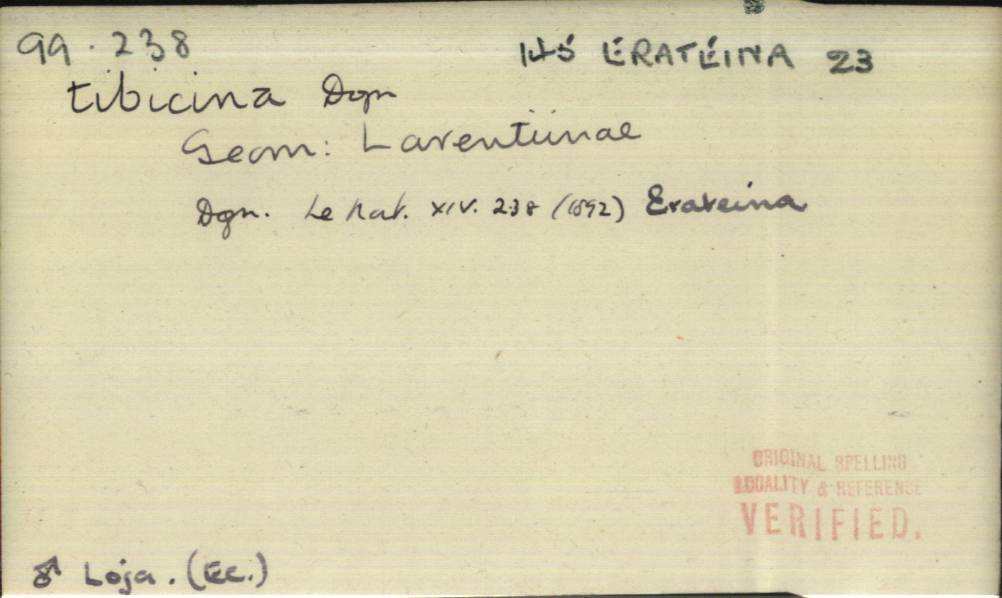 99.238 145 ERATEINA 23
tibicina Dgn
Geom: Larentiinae
Dgn. Le Nat. XIV. 238 (1892) Erateina
ORIGINAL SPELLING
LOCALITY & REFERENCE
VERIFIED.
♂ Loja. (Ec.)